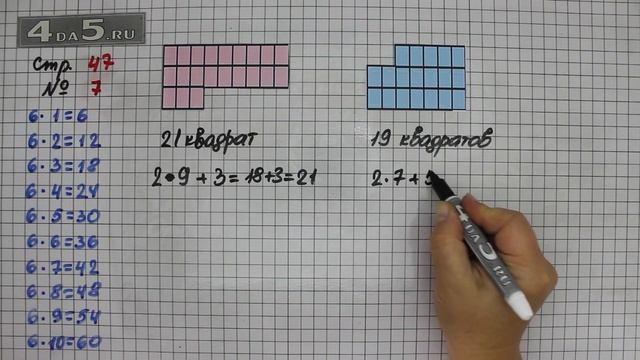 4DA5.RU
Стр. 47
№ 7
6·1=6
6·2=12
6·3=18
6·4=24
6·5=30
6·6=36
6·7=42
6·8=48
6·9=54
6·10=60
21 квадрат
2·9+3=18+3=21
19 квадратов
2·7+
4DA5.RU